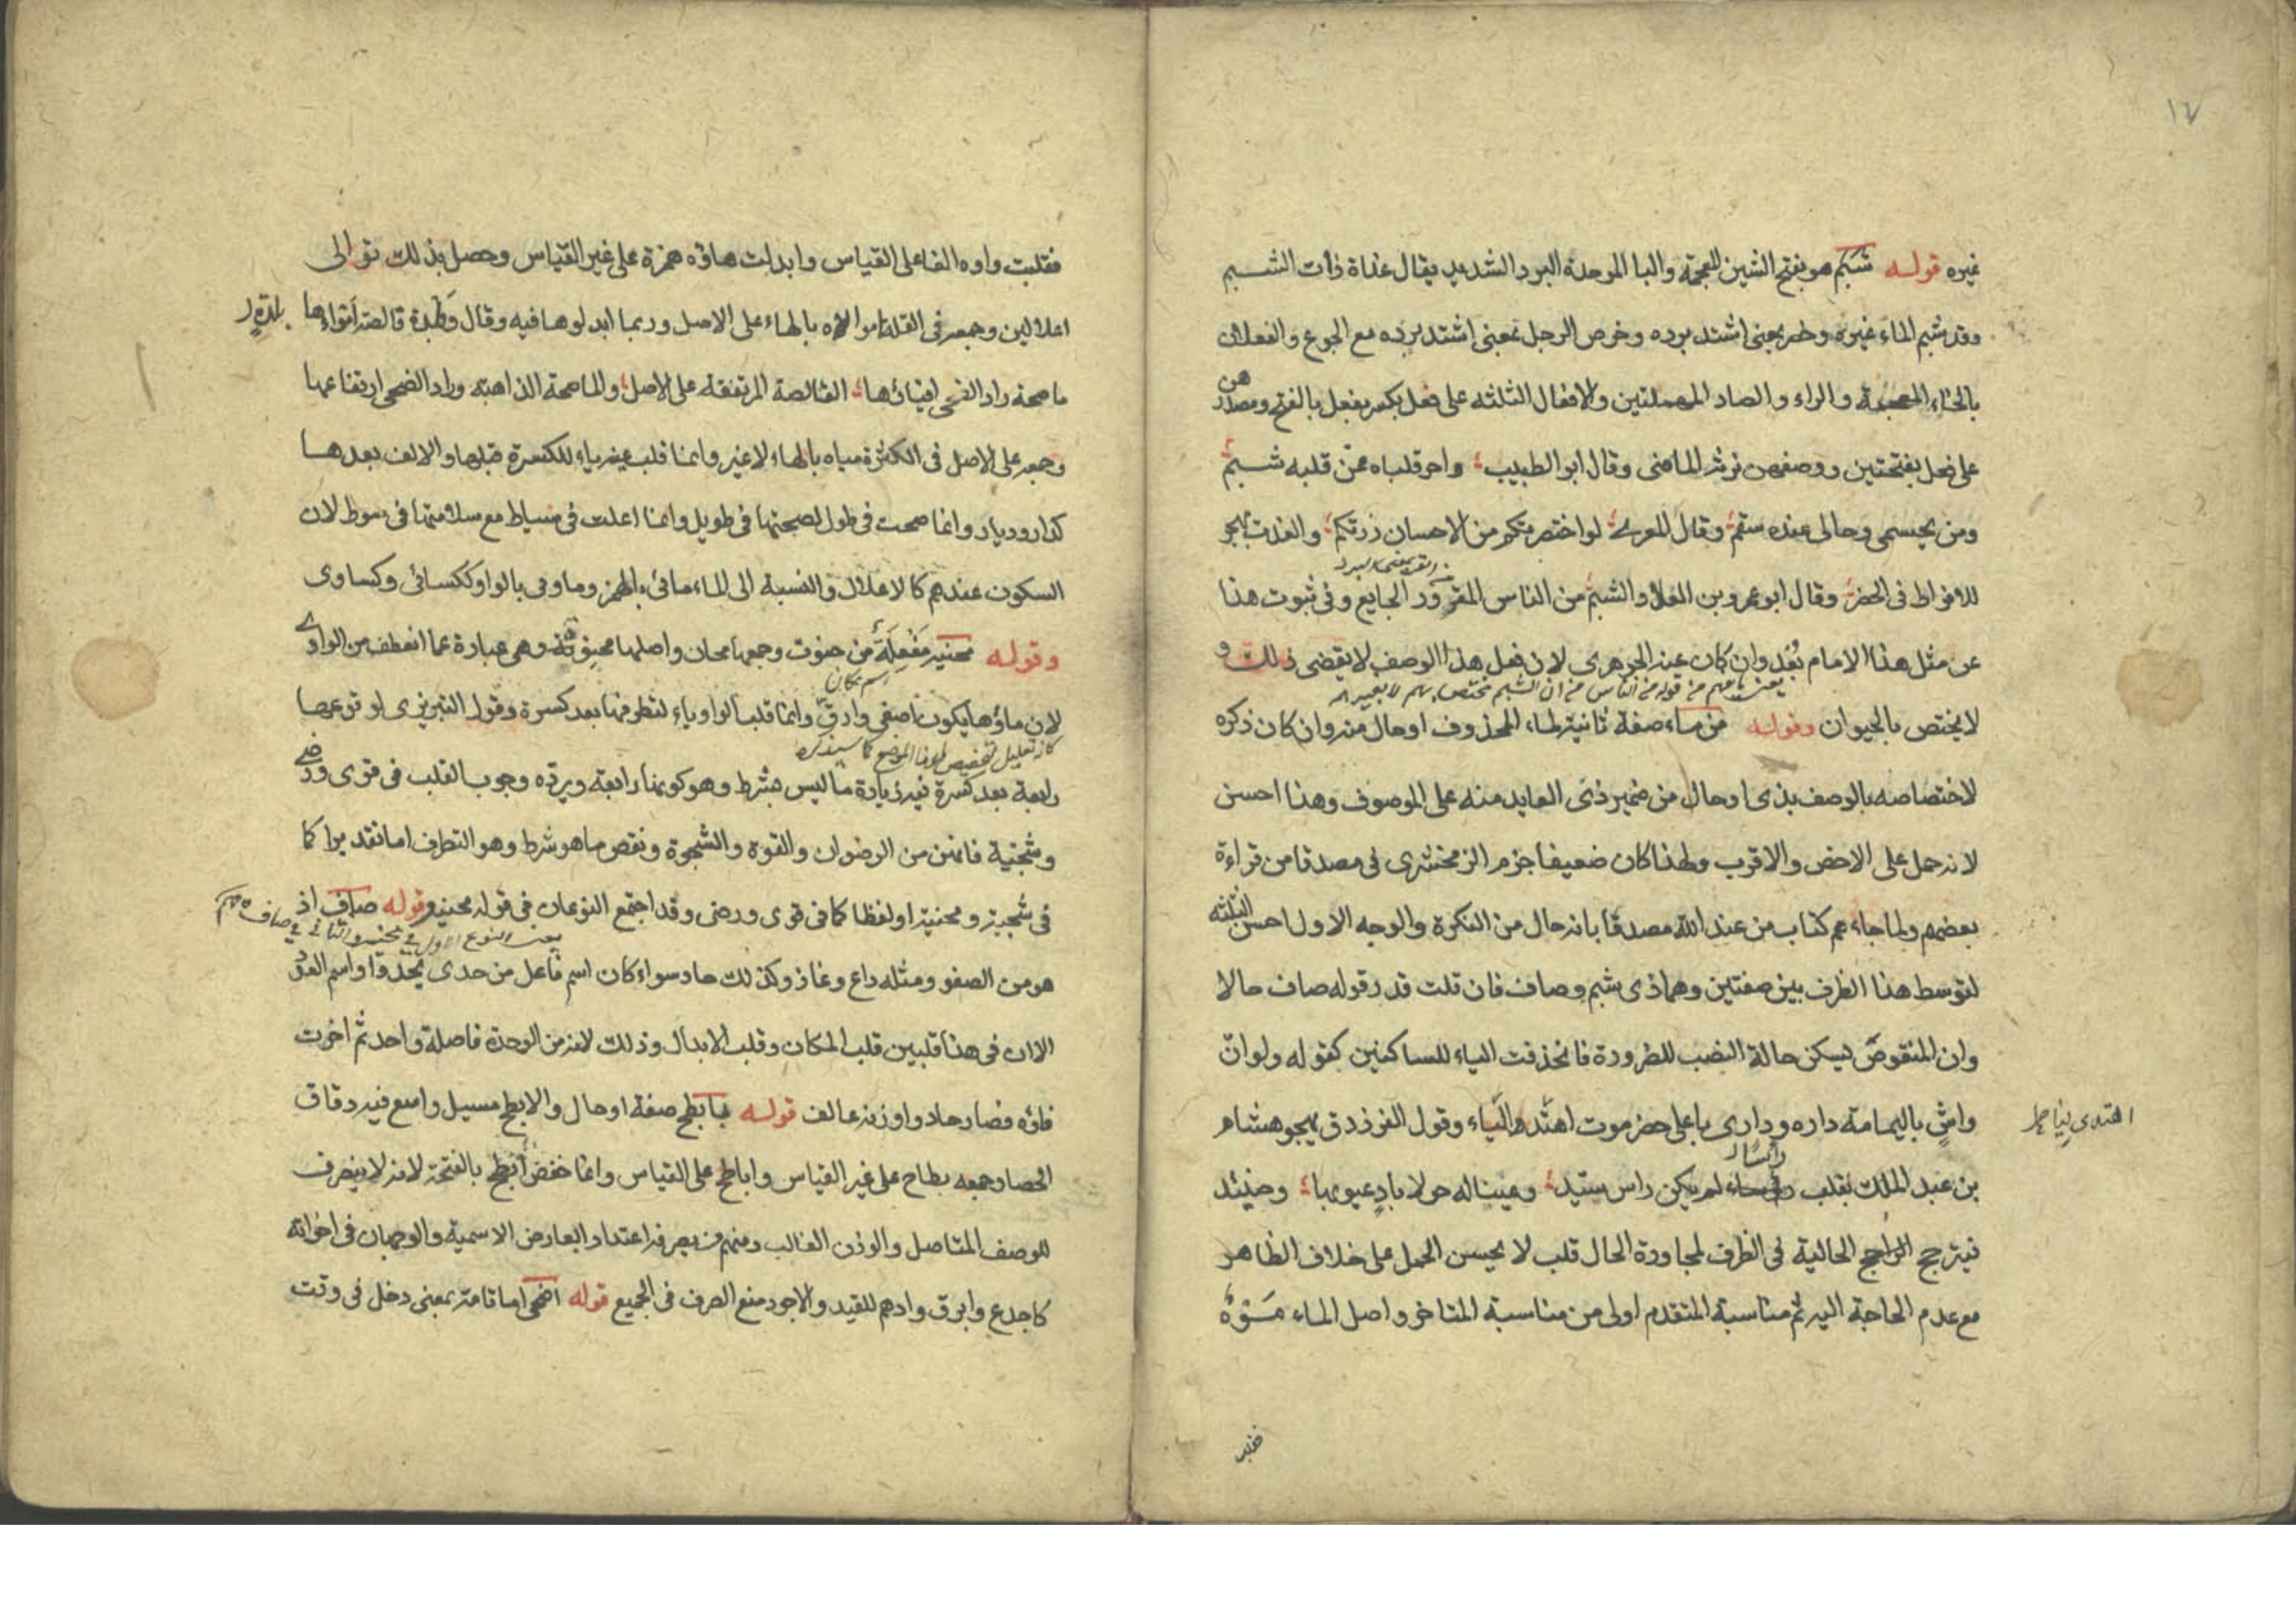 ١٧
غيره قوله شبم هو بفتح الشين المعجمة والبا الموحدة البرد الشديد يقال غداة ذات الشبم
وقد شبم الماء غيره وخصر بمعنى اشتد برده وخرص الرجل بمعنى اشتد برده مع الجوع والفعلان
بالخاء المعجمة والراء والصاد المهملتين والافعال الثلثه على فعل بكسر يفعل بالفتح ومصدرهن
على فعل بفتحتين ووصفهن نرنة الماضى وقال ابو الطبيب واحر قلباه ممن قلبه شبم
ومن بجسمى وحالى عنده سقم وقال المعرى لو اختصرتم من الاحسان زرتكم والعذب يهجر
للافراط فى الخصر وقال ابو عمرو بن العلا والشبم من الناس المقرور الجايع وفى ثبوت هذا
عن مثل هذا الامام بُعْد وان كان عند الجوهرى لان فعل هذا الوصف لا يقتضى ذلك و
لا يختص بالحيوان وقوله من ماء صفة ثانية لماء المحذوف او حال منه وان كان ذكره
لاختصاصه بالوصف بذى او حال من ضمير ذى العايد منه على الموصوف وهذا احسن
لانه حمل على الاخص والاقرب ولهذا كان ضعيفا جزم الزمخشرى فى مصدقا من قراءة
بعضهم ولما جاءهم كتاب من عند الله مصدقا بانه حال من النكرة والوجه الاول احسن الثلثه
لتوسط هذا الظرف بين صفتين وهما ذى شبم وصاف فان قلت قدر قوله صاف حالا
وان المنقوص يسكن حالة النصب للضرورة فانحذفت الياء للساكنين كقوله ولو انّ
واشٍ باليمامة داره ودارى باعلى حضرموت اهتد والياء وقول الفرزدق يهجو هشام
اهتدى ليا
بن عبد الملك يقلب راسا لم يكن راس سيّد وعينا له حولا بادٍ عيوبها وحينئد
فيترجح الراجح الحالية فى الظرف لمجاورة الحال قلب لا يحسن الحمل على خلاف الظاهر
مع عدم الحاجة اليه ثم مناسبة المتقدم اولى من مناسبة المتاخر واصل الماء مَوَهٌ
فقلبت واوه الفا على القياس وابدلت هاؤه همزة على غير القياس وحصل بذلك توالى
اعلالين وجمعه فى القلة امواه بالهاء على الاصل وربما ابدلوها فيه وقال وبلدة قالصة امواءها
بلدةٍ
ماصحة راد الضحى افياؤها القالصة المرتفعة على الاصل والماصحة الذاهبة وراد الضحى ارتفاعها
وجمعه على الاصل فى الكثرة مياه بالهاء لا غير وانما قلب عينه ياء للكسرة قبلها والالف بعدها
كدار وديار وانما صحت فى طول لصحتها فى طويل وانما اعلت فى سياط مع سلامتها فى سوط لان
السكون عندهم كالاعلال والنسبة الى الماء مائى بالهمز وماوى بالواو ككسائى وكساوى
وقوله محنية مَفْعِلَة من حنوت وجمعها محان واصلها محنوة وهى عبارة عما انعطف من الوادى
اسم مكان
لان ماؤها يكون اصفى وارق وانما قلبت الواو ياء لتطرفها بعد كسرة وقول التبريزى لوقوعها
رابعة بعد كسرة فيه زيادة ما ليس بشرط وهو كونها رابعة ويرده وجوب القلب فى قوى ورضى
وشجية فانهن من الرضوان والقوة والشجوة ونقص ما هو شرط وهو التطرف اما تقديرا كما
فى شجية ومحنية او لفظا كما فى قوى ورضى وقد اجتمع النوعان فى قوله محنية وقوله صاف اذ
يعنى النوع الاول فى محنية والثانى فى صاف
هو من الصفو ومثله داع وغاز وكذلك حاد سواء كان اسم فاعل من حدى يحدوا او اسم العدد
الا ان فى هذا قلبين قلب المكان وقلب الابدال وذلك لانه من الوحدة فاصله واحد ثم اخرت
فاؤه فصار حادو اوزنه عالف قوله بابطح صفة او حال والابطح مسيل واسع فيه دقاق
الحصا وجمعه بطاح على غير القياس واباطح على القياس وانما خفض ابطح بالفتحة لانه لا ينصرف
للوصف المتاصل والوزن الغالب ومنهم من يصرفه اعتدادا بعارض الاسمية والوجهان فى اخواته
كاجدع وابرق وادهم للقيد والاجود منع الصرف فى الجميع قوله اضحى اما تامة بمعنى دخل فى وقت